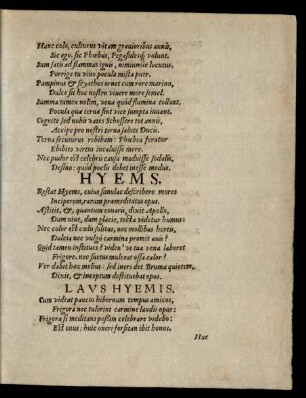 Hanc colo, culturus vitam gravioribus annis,
Sic ego. sic Phœbus, Pegasidesq́; volunt.
Sum satis ad flammas ignis, nimiumve locutus,
Porrige tu vivo pocula mista puer.
Pampinus & scyathos ornet cum rore marino,
Dulce sit hoc nostro vivere more semel.
Summa tamen nolim, vena quid flumina tollant.
Pocula quæ terna sint vice sumpta iuvant.
Cognite sed nobis vates Schossere tot annis,
Accipe pro nostri terna salute Ducis.
Terna secuturus rebibam: Phœbea feratur
Ebibito virtus incaluisse mero.
Nec pudor est celebris causa maduisse sodalis,
Desino: quid poclis debet inesse modus.
HYEMS.
Restat Hyems, cuius simulac describere mores
Inciperem, rarum præmeditatus opus.
Astitit, &, quantum conaris, dixit Apollo,
Dum nive, dum glacie, tecta videtur humus:
Nec color est cœli solitus, nec mollibus hortis,
Dulcia nec vulgò carmina promit avis?
Quid tamen institues? viden' vt tua vena laboret
Frigore, nec suetus mulceat ossa calor?
Ver dabat hæc melius: sed iners det Bruma quietem,
Dixit, & inceptum destituebat opus.
LAVS HYEMIS.
Cum videat paucos hibernum tempus amicos,
Frigora nec tulerint carmine laudis opus:
Frigora si meditans possim celebrare videbo:
Est onus: huic oneri forsitan ibit honos.
Huc